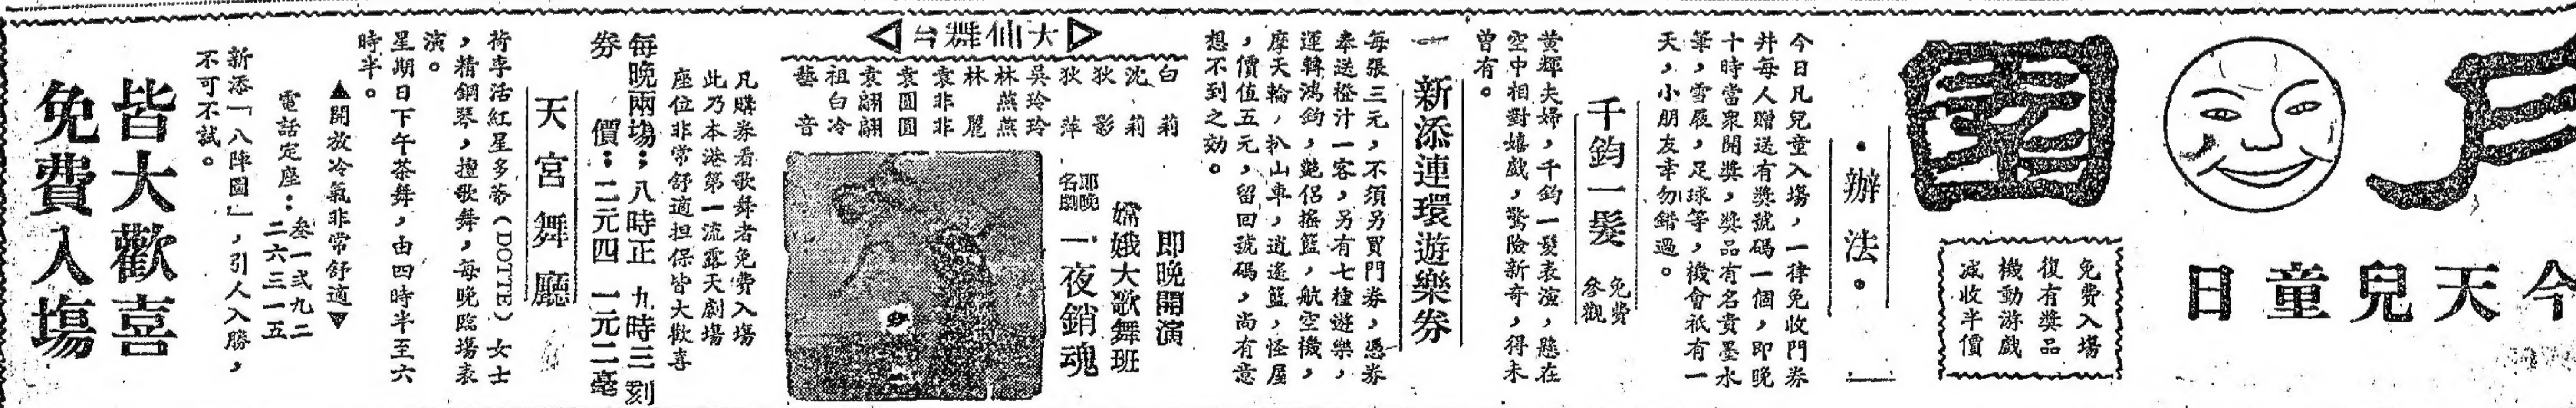 月園
今天兒童日
免費入塲
復有獎品
機動游戲
减收半價
•辦法•
今日凡兒童入塲，一律免收門券
并每人贈送有獎號碼一個，即晚
十時當衆開獎，獎品有名貴墨水
筆，雪屐，足球等，機會祇有一
天，小朋友幸勿錯過。
千鈞一髮 免費參觀
黄輝夫婦，千鈞一髮表演，懸在
空中相對嬉戲，驚險新奇，得未
曾有。
新添連環遊樂券
每張三元，不須另買門券，憑券
奉送橙汁一客，另有七種遊樂，
運轉鴻鈞，艶侶搖籃，航空機，
摩天輪，扒山車，逍遙籃，怪屋
，價值五元，留回號碼，尚有意
想不到之効。
大仙舞台
即晚開演
嫦娥大歌舞班
耶晚名劇 一夜銷魂
白莉
沈莉
狄影
狄萍
吳玲玲
林燕燕
林麗
袁非非
袁圓圓
袁翩翩
祖白冷
藝音
凡購券看歌舞者免費入塲
此乃本港第一流露天劇塲
座位非常舒適担保皆大歡喜
每晚兩塲：八時正 九時三刻
券價：二元四 一元二毫
天宮舞廳
荷李活紅星多蒂（DOTTE）女士
，精鋼琴，擅歌舞，每晚臨塲表
演。
星期日下午茶舞，由四時半至六
時半。
▲開放冷氣非常舒適▼
電話定座：叁一弍九二
二六三一五
新添「八陣圖」，引人入勝，
不可不試。
皆大歡喜
免費入塲